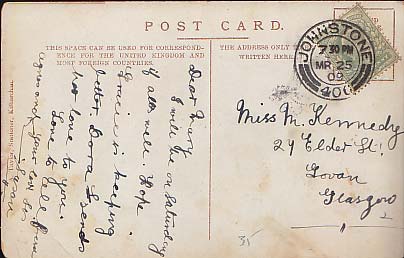 POST CARD.
THIS SPACE CAN BE USED FOR CORRESPOND-
ENCE FOR THE UNITED KINGDOM AND
MOST FOREIGN COUNTRIES.
THE ADDRESS ONLY
WRITTEN HERE.
JOHNSTONE
7 30 PM
MR 25
09
400
Dear Mary
I will be on Saturday
if all well. Hope
Gracie is keeping
better. Dora sends
her love to you.
Love to all from
your
Miss M. Kennedy
29 Elder St.,
Govan
Glasgow
35